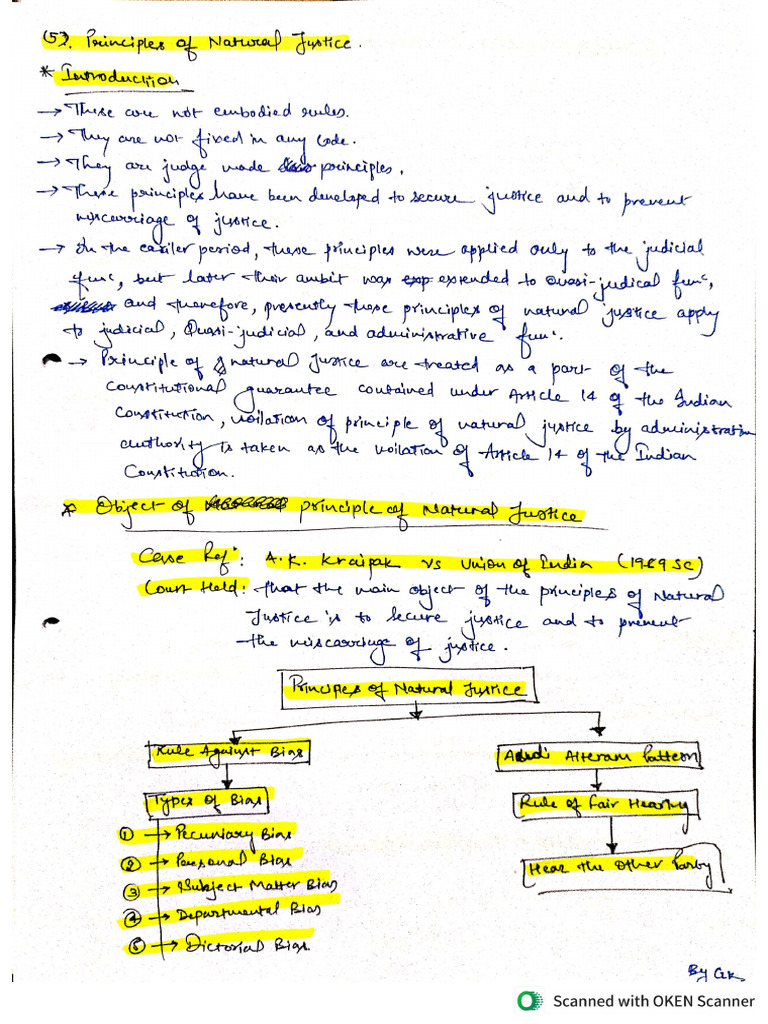 (5). Principles of Natural Justice.
* Introduction
→ These are not embodied rules.
→ They are not fixed in any Code.
→ They are judge made principles.
→ These principles have been developed to secure justice and to prevent
miscarriage of justice.
→ In the earlier period, these principles were applied only to the judicial
funⁿ, but later their ambit was extended to Quasi-judical funⁿ,
and therefore, presently these principles of natural justice apply
to judicial, Quasi-judicial, and administrative funⁿ.
→ Principle of natural Justice are treated as a part of the
Constitutional guarantee contained under Article 14 of the Indian
Constitution, voilation of principle of natural justice by administration
authority is taken as the voilation of Article 14 of the Indian
Constitution.
* Object of principle of Natural Justice
Case Refⁿ: A.K. Kraipak vs Union of India (1969 SC)
Court Held: that the main object of the principles of Natural
Justice is to secure justice and to prevent
the miscarriage of justice.
Principles of Natural Justice
Rule Against Bias
Audi Alteram Pattern
Types of Bias
Rule of Fair Hearing
① → Pecuniary Bias
② → Personal Bias
Hear the Other Party
③ → Subject Matter Bias
④ → Departmental Bias
⑤ → Dictorial Bias
By GK
Scanned with OKEN Scanner